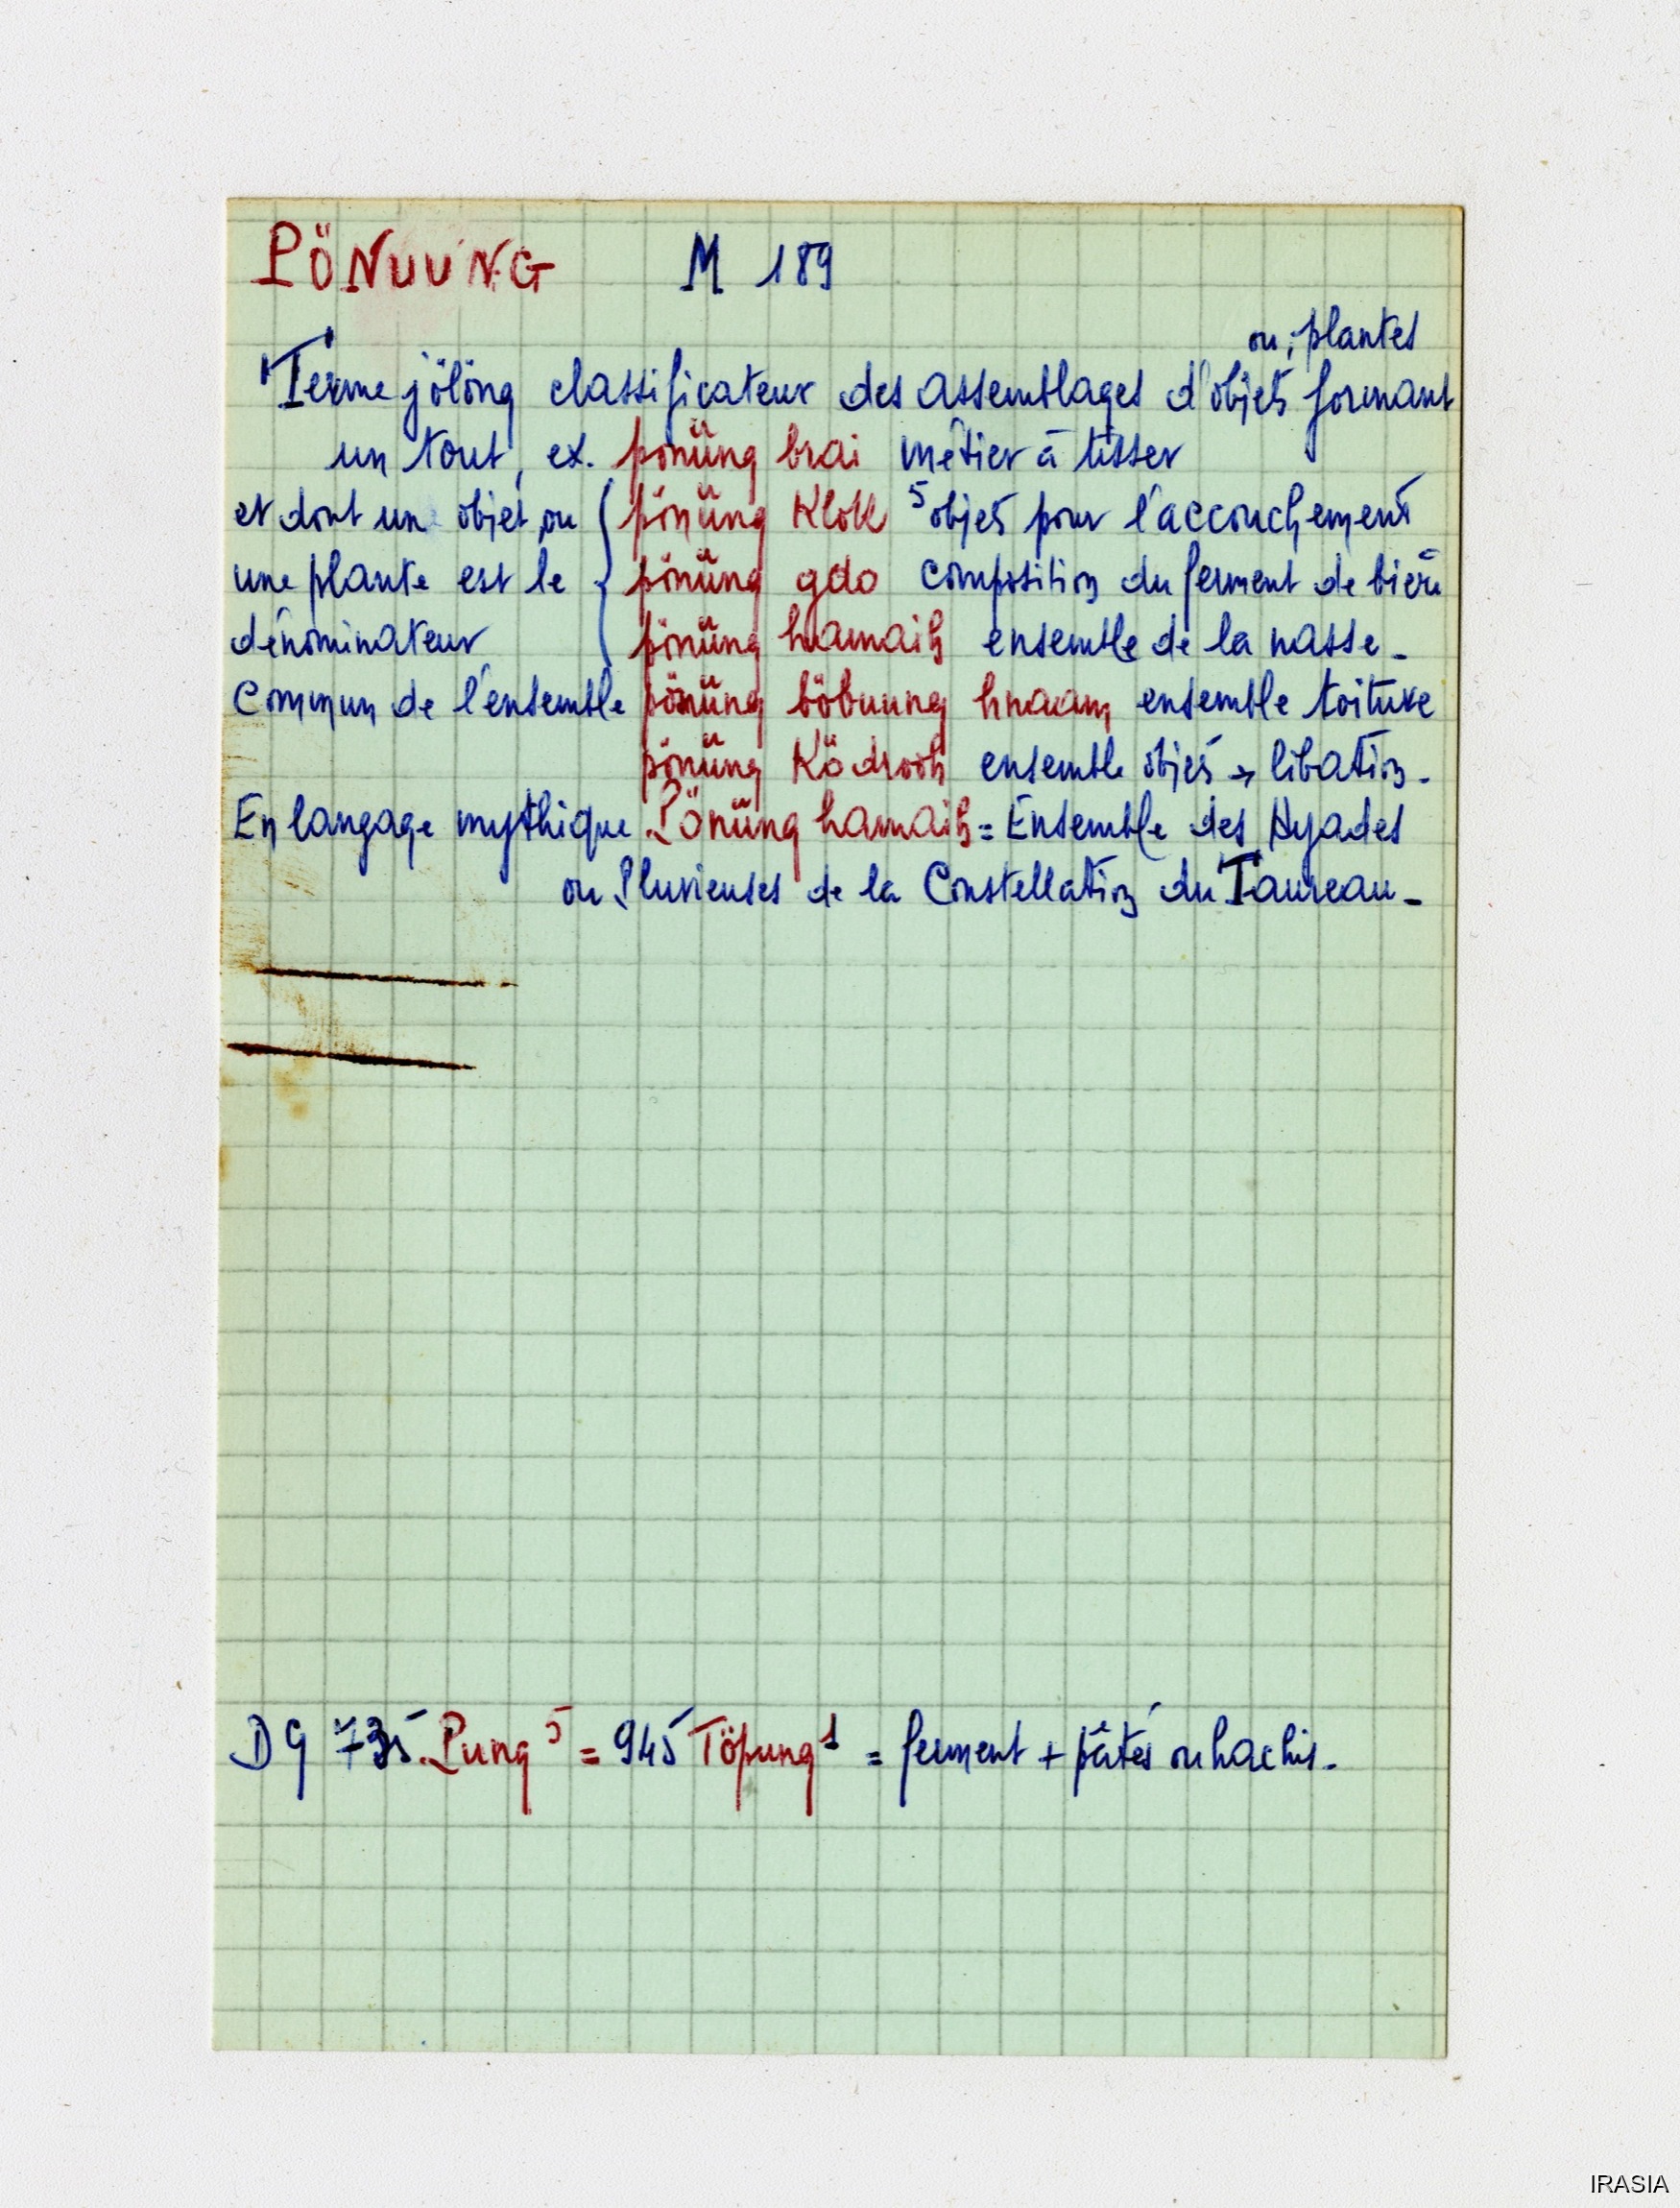 PÖNUUNG M 189
ou plantes
Terme jölöng classificateur des assemblages d'objets formant
un tout, ex. pönüng brai métier à tisser
et dont un objet ou pönüng Klok 5 objets pour l'accouchement
une plante est le pönüng gdo composition du ferment de bière
dénominateur pönüng hamaih ensemble de la nasse_
Commun de l'ensemble pönüng böbuung hnaam ensemble toiture
pönüng Ködrooh ensemble objets → libation_
En langage mythique Pönüng hamaih = Ensemble des Hyades
ou Pluvieuses de la Constellation du Taureau_
DG 735 Pung 5 = 945 Töpung 1 = ferment + pâtés ou hachis_
IRASIA